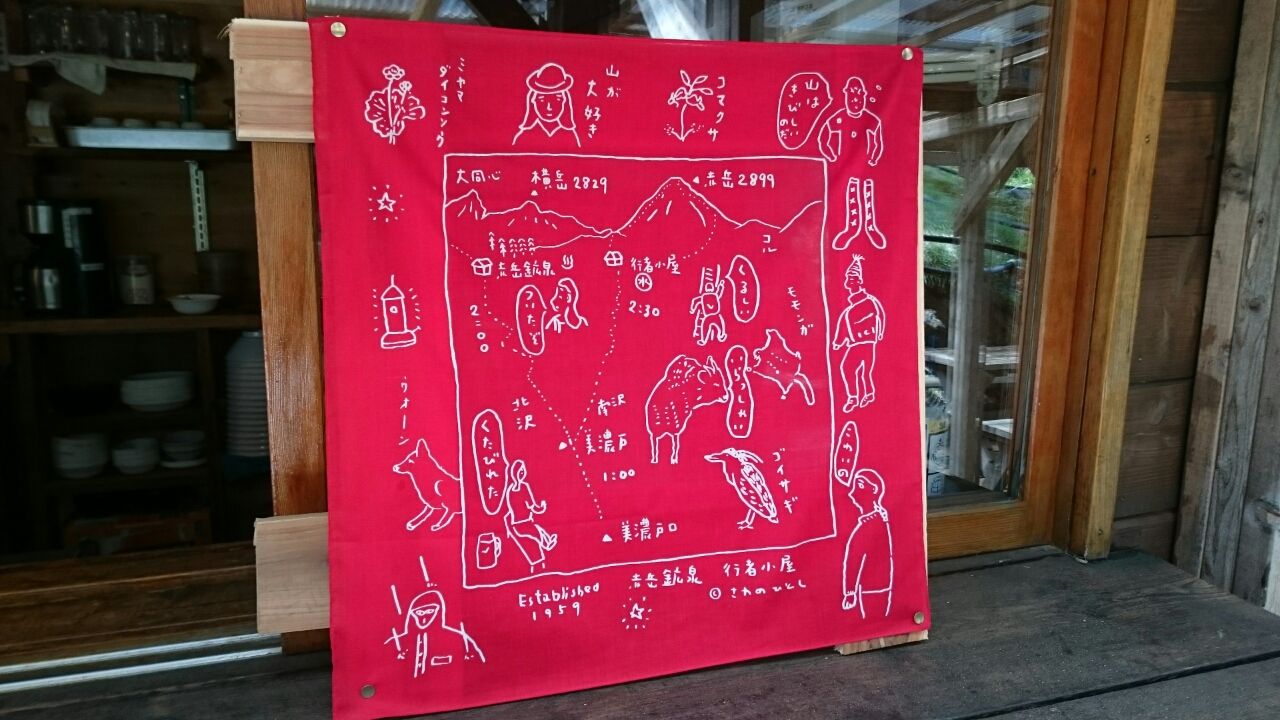 ミヤマ
ダイコンソウ
山が
大好き
コマクサ
山は
きびしい
のだ
大同心
横岳2829
赤岳2899
赤岳鉱泉
行者小屋
水
コル
くるしい
モモンガ
ついたぞ
2:00
2:30
北沢
南沢
美濃戸
1:00
くたびれた
ゴイサギ
ウォーン
美濃戸口
Established
1959
赤岳鉱泉 行者小屋
© さわのひとし